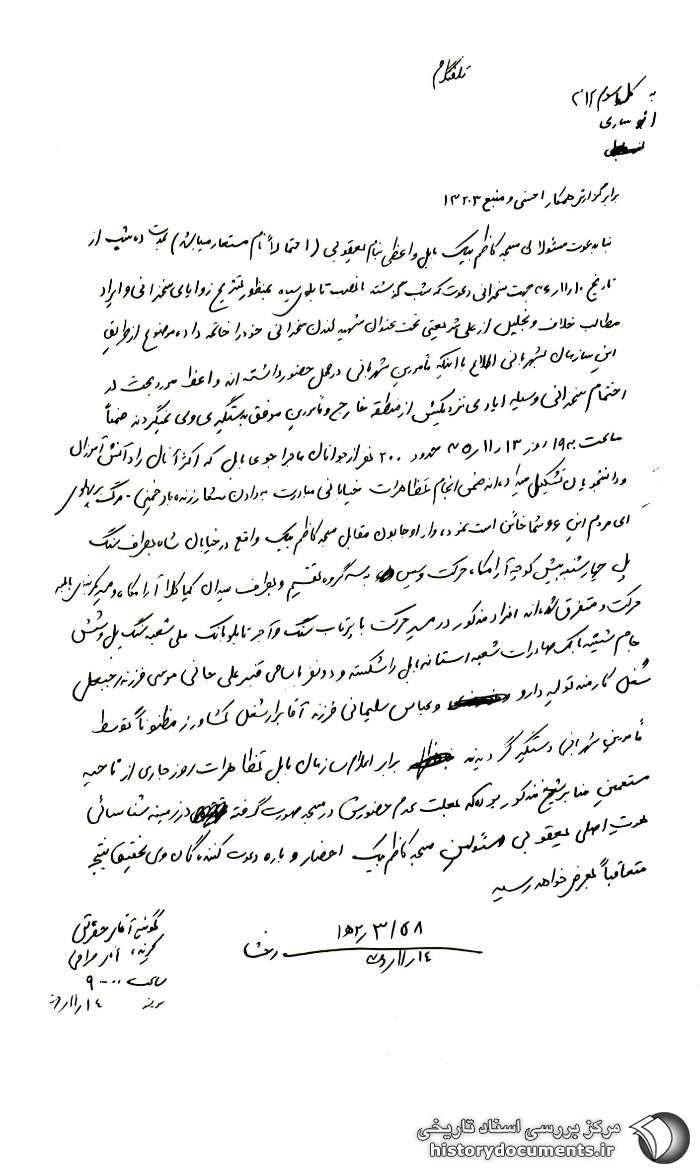 تلفنگرام
به کل سوم ۳۱۲
از ساری
برابر گزارش همکار احسنی و منبع ۱۳۲۰۳
بنا به دعوت مسئولان مسجد کاظم بیک بابل واعظی بنام یعقوبی (احتمالاً نام مستعار میباشد) مدت ده شب از
تاریخ ۱۰/۱۱/ جهت سخنرانی دعوت که شب گذشته با نصب تابلوی سیاه بمنظور تشریح زوایای سخنرانی و ایراد
مطالب خلاف و تجلیل از علی شریعتی تحت عنوان شهید لندن سخنرانی خود را خاتمه داده موضوع از طریق
این سازمان بشهربانی اطلاع با اینکه مأمورین شهربانی در محل حضور داشته اند واعظ مورد بحث در
اختتام سخنرانی وسیله ایادی نزدیکش از منطقه خارج و مأمورین موفق بدستگیری وی نمیگردند ضمناً
ساعت ۱۹۰۰ روز ۱۳/۱۱/ حدود ۲۰۰ نفر از جوانان ماجراجوی بابل که اکثر آنان را دانش آموزان
و دانشجویان تشکیل میداده اند ضمن انجام تظاهرات خیابانی مبادرت به دادن شعار زنده باد خمینی - مرگ بر پهلوی
ای مردم این شما خائن است نموده و از روبروی مقابل مسجد کاظم بیک واقع در خیابان شاه بطرف سنگ
پل چهارشنبه پیش کوچه آرامگاه حرکت و سپس به سه گروه تقسیم و بطرف میدان کیاکلا آرامگاه و
حرکت و متفرق شده اند افراد مذکور در مسیر حرکت با پرتاب سنگ و آجر تابلو بانک ملی شعبه سنگ پل و شش
جام شیشه بانک صادرات شعبه آستانه بابل را شکسته و دو نفر باسامی قنبرعلی خانی موسی فرزند رجبعلی
شغل کارمند تولید دارو و عباس سلیمانی فرزند آقابرار شغل کشاورز مظنوناً توسط
مأمورین شهربانی دستگیر گردیدند برابر اعلام سازمان بابل تظاهرات روز جاری از ناحیه
مستمعین منابر شیخ مذکور بوده که بعلت عدم حضورش در مسجد صورت گرفته در زمینه شناسائی
هویت اصلی یعقوبی مسئولین مسجد کاظم بیک احضار و درباره دعوت کنندگان وی تحقیق نتیجه
متعاقباً بعرض خواهد رسید
۳/۵۸
۱۴/۱۱/
گوینده آقای
گیرنده آقای
ساعت ۹۰۰
۱۴/۱۱/
مرکز بررسی اسناد تاریخی
historydocuments.ir